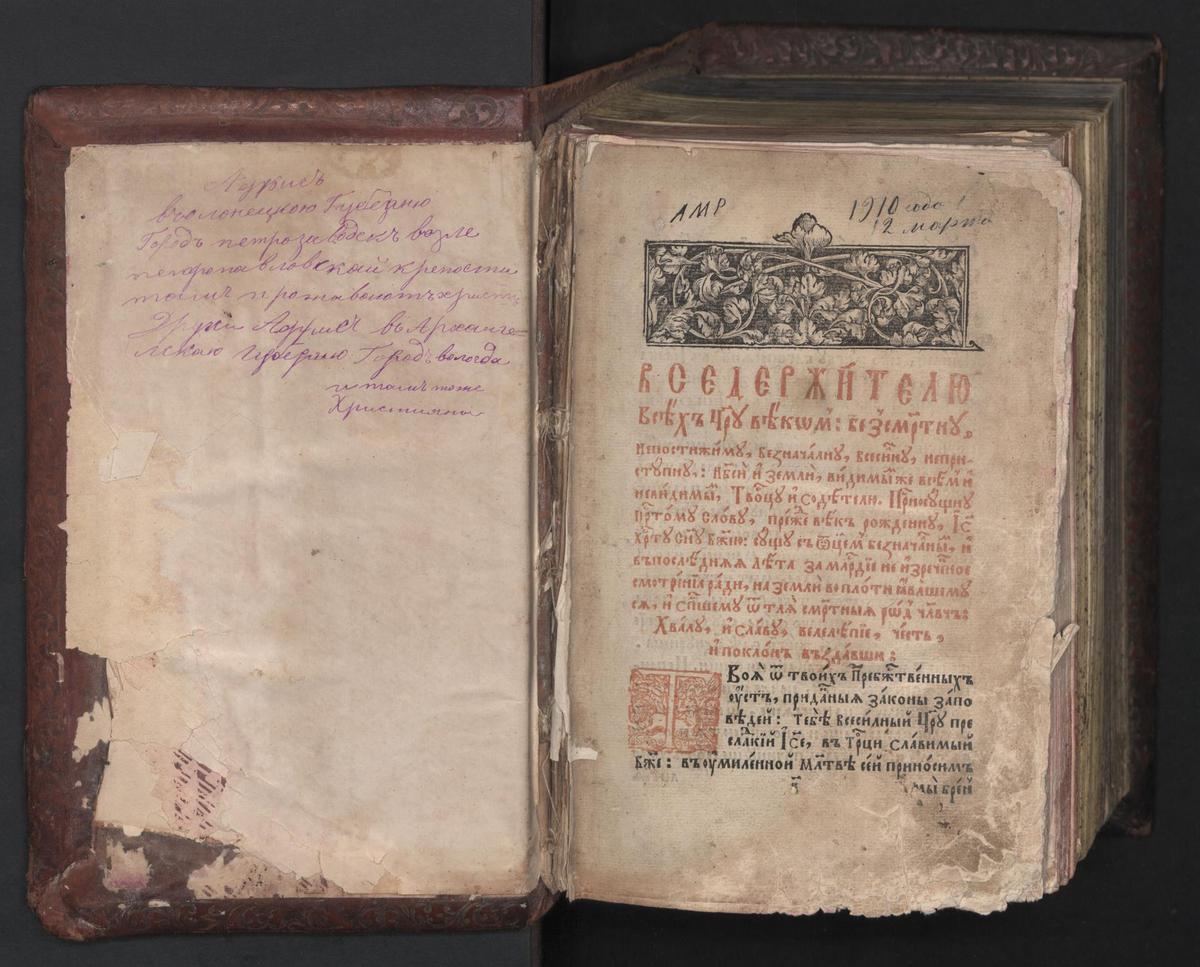 Адрисъ
в олонецкою Губерню
Городъ петрозаводскъ возле
петропавловской крепости
тамъ проживоютъ христи
Други Адрисъ в Арханге-
лскою Губерню Городъ вологда
и тамъ тоже
Християны
АМР
1910 года
12 марта
ВСЕДЕРЖИ́ТЕЛЮ
всѣ́хъ Цр҃ю вѣ́кѡмъ: безсме́ртну,
Непостижи́му, безнача́лну, всеси́лну, непри-
сту́пну: Нб҃си и҆ землѝ, ви́димымъ же всѣ́мъ и҆
неви́димымъ, Творцу̀ и҆ содѣ́телю. Присносу́щну
пресвято́му сло́ву, пре́жде вѣ́къ рожде́нну, Іс҃
Хрⷭ҇ту сн҃у бж҃ию: су́щу съ ѻ҆ц҃е́мъ безнача́лнымъ, и҆
въ послѣ́дняя лѣ́та за млⷭ҇рдїе неизрече́нное
смотре́нїя ра́ди, на землѝ во пло́ти ꙗ҆́вльшему
ся, и҆ сп҃сшему ѿ тля̀ сме́ртныя ро́дъ чл҃вчь:
Хвалу̀, и҆ сла́ву, велелѣ́пїе, че́сть,
и҆ покло́нъ возда́вши:
Твоя̀ ѿ твои́хъ Пребжⷭ҇твенныхъ
ᲂу҆́стъ, прида́нныя зако́ны за́по
вѣдей: тебѣ̀ всеси́лный Цр҃ю пре
сла́дкїй Іс҃е, въ трⷪ҇цы сла́вимый
Бж҃е: въ ᲂу҆миле́нной мл҃твѣ се́й прино́симъ
мы̀ бре́й